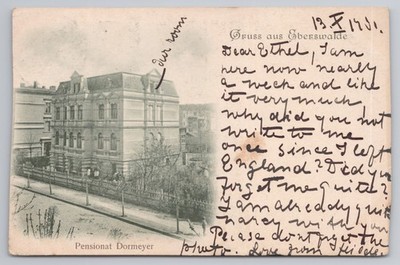 13. X 1901.
Gruss aus Eberswalde
our room
Dear Ethel, I am
here now nearly
a week and like
it very much
why did you not
write to me
once since I left
England? Did you
forget me quite?
I am alreddy quit
with you
Please dont forget the
photo. Love from
Pensionat Dormeyer